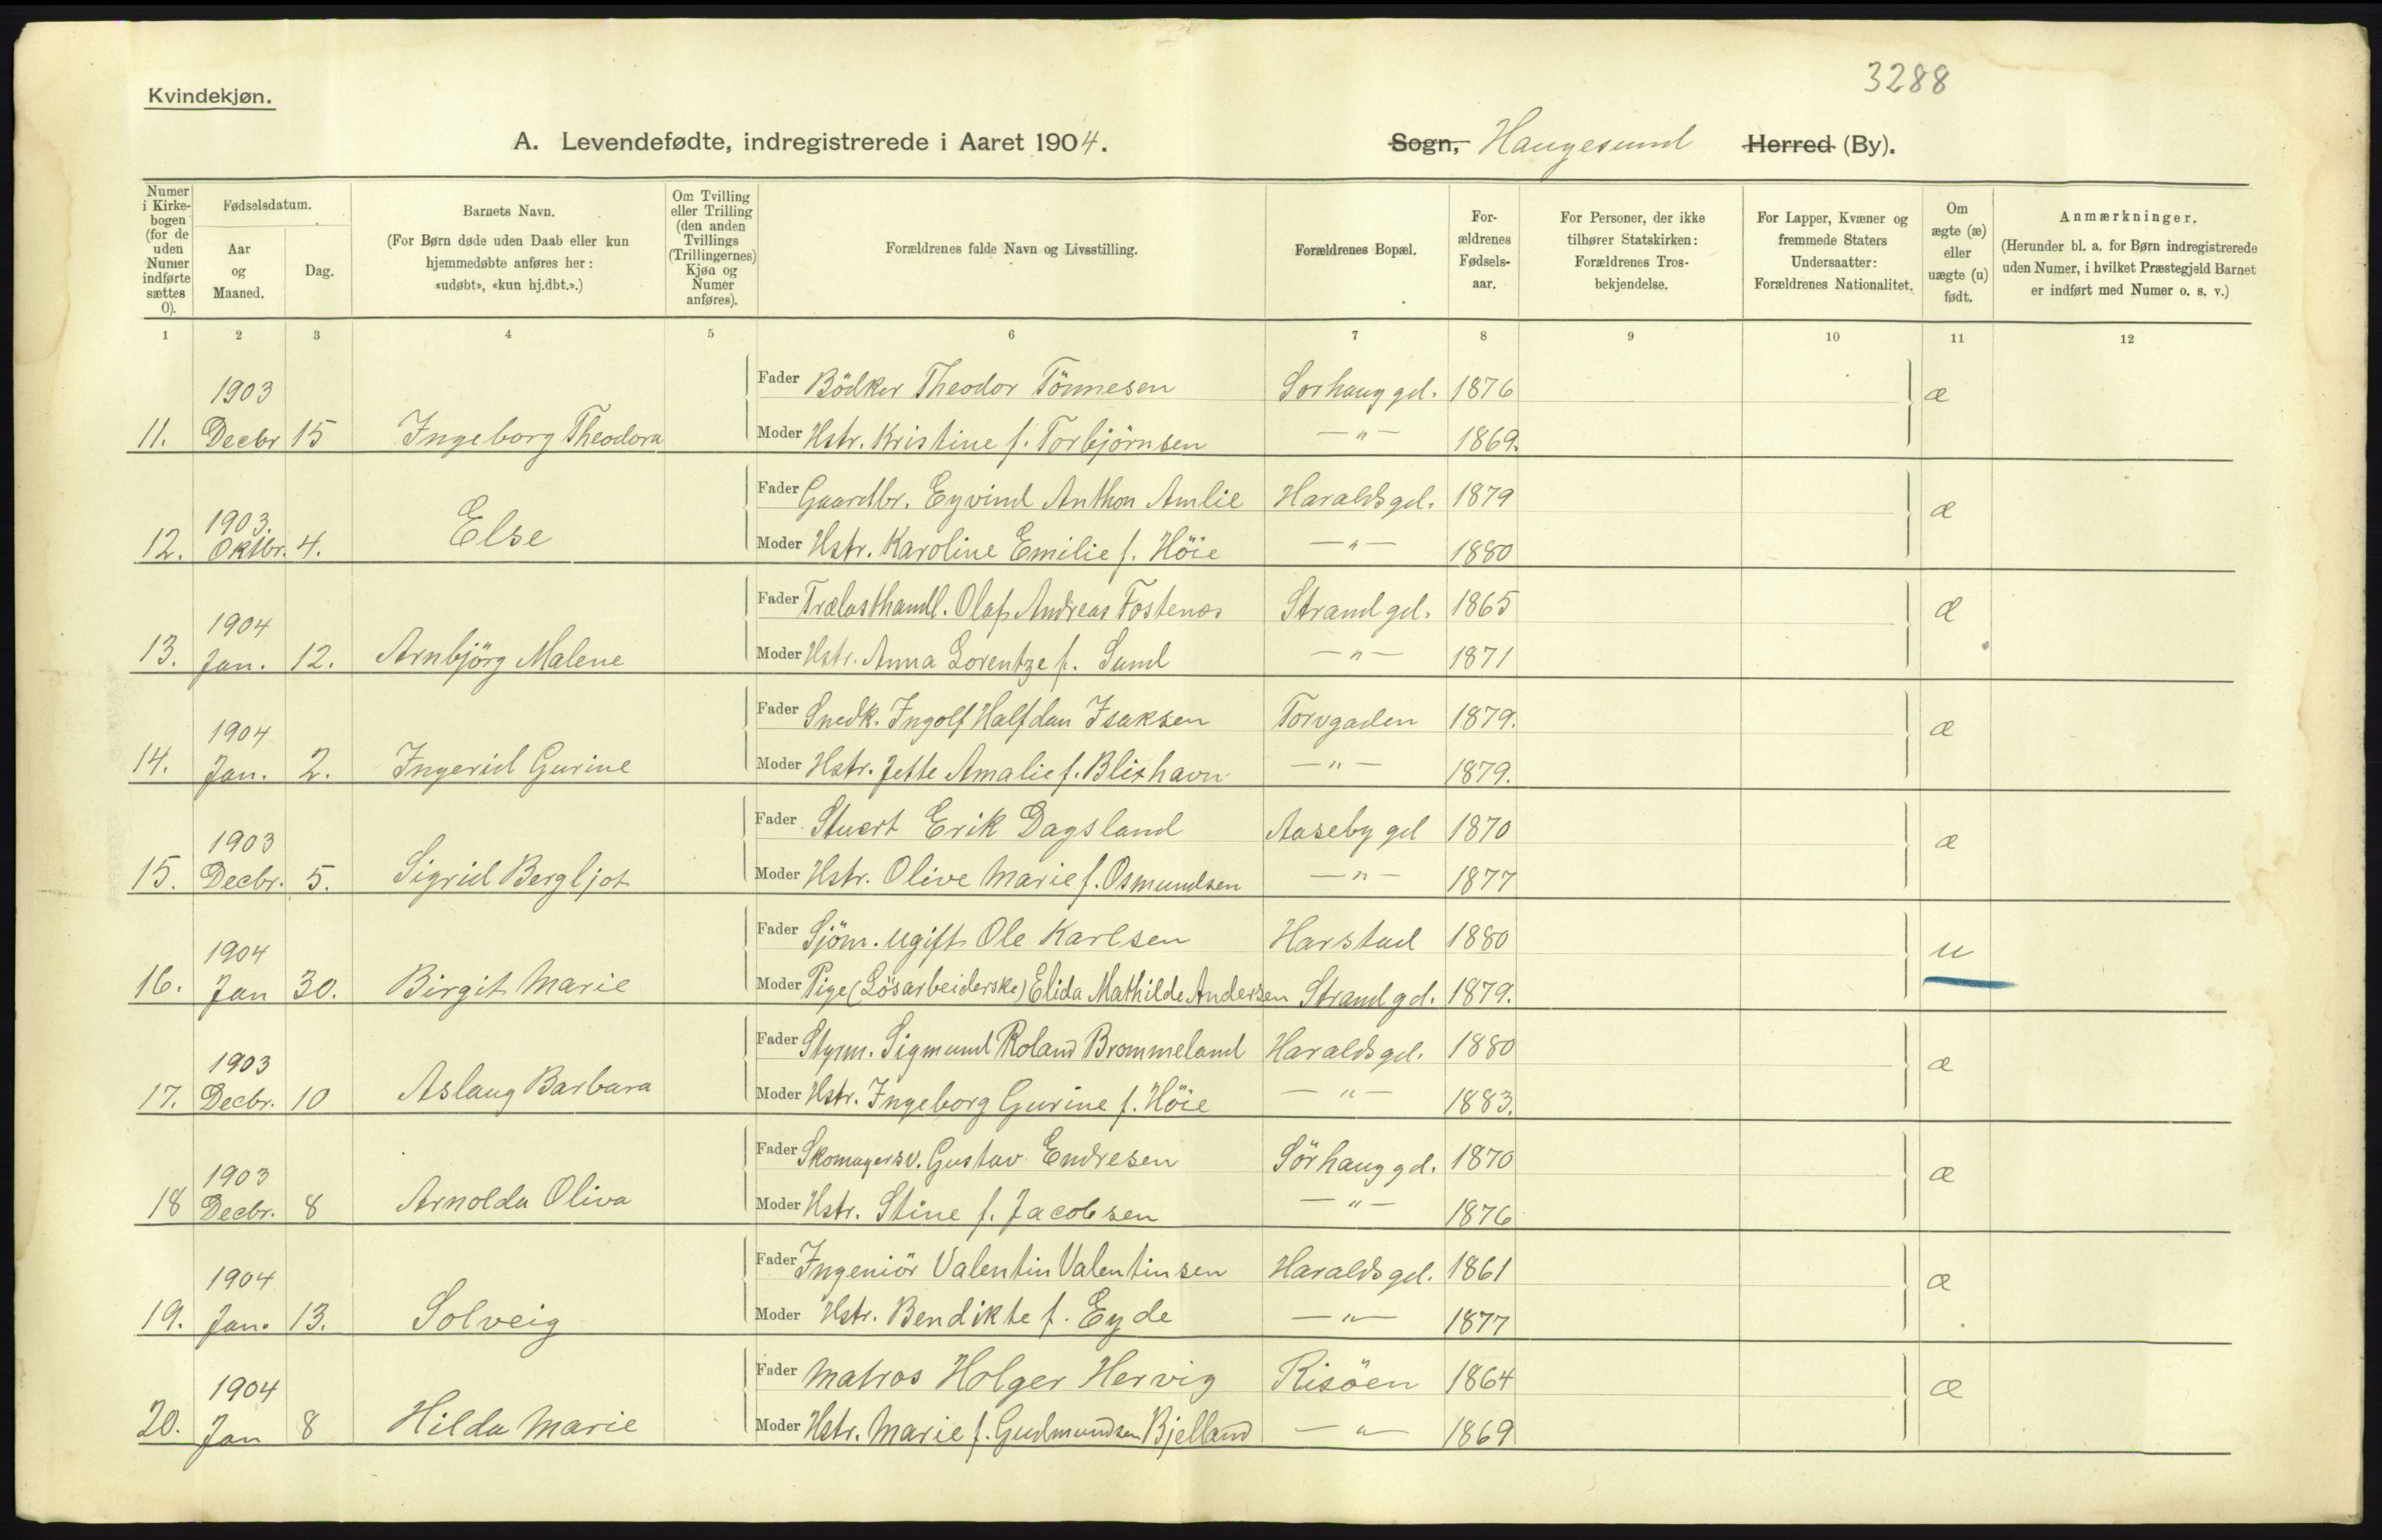 3288
Kvindekjøn.
A. Levendefødte, indregistrerede i Aaret 1904. Sogn, Haugesund Herred (By).
Numer i Kirke- bogen (for de uden Numer indførte sættes 0).
Fødselsdatum.
Aar og Maaned.
Dag.
Barnets Navn.
(For Børn døde uden Daab eller kun hjemmedøbte anføres her: «udøbt», «kun hj.dbt.».)
Om Tvilling eller Trilling (den anden Tvillings (Trillingernes) Kjøn og Numer anføres).
Forældrenes fulde Navn og Livsstilling.
Forældrenes Bopæl.
For- ældrenes Fødsels- aar.
For Personer, der ikke tilhører Statskirken: Forældrenes Tros- bekjendelse.
For Lapper, Kvæner og fremmede Staters Undersaatter: Forældrenes Nationalitet.
Om ægte (æ) eller uægte (u) født.
Anmærkninger.
(Herunder bl. a. for Børn indregistrerede uden Numer, i hvilket Præstegjeld Barnet er indført med Numer o. s. v.)
1 2 3 4 5 6 7 8 9 10 11 12
1903 Fader Bödker Theodor Tönnesen Sorhauggd. 1876 æ
11. Decbr 15 Ingeborg Theodora Moder Hstr. Kristine f. Torbjörnsen —"— 1869.
1903. Fader Gaardbr. Eyvind Anthon Amlie Haraldsgd. 1879 æ
12. Oktbr. 4. Else Moder Hstr. Karoline Emilie f. Höie —"— 1880
1904 Fader Trælasthandl. Olaf Andreas Fostenæs Strandgd. 1865 æ
13. Jan. 12. Arnbjörg Malene Moder Hstr. Anna Lorentze f. Sund —"— 1871
1904 Fader Snedk. Ingolf Halfdan Isaksen Torvgaden 1879. æ
14. Jan. 2. Ingerid Gurine Moder Hstr. Jette Amalie f. Blixhavn —"— 1879.
1903 Fader Stuert Erik Dagsland Aasebygd 1870 æ
15. Decbr. 5. Sigrid Bergljot Moder Hstr. Olive Marie f. Osmundsen —"— 1877
1904 Fader Sjöm. ugift Ole Karlsen Harstad 1880 u
16. Jan 30. Birgit Marie Moder Pige (Lösarbeiderske) Elida Mathilde Andersen Strandgd. 1879.
1903 Fader Styrm. Sigmund Roland Brommeland Haraldsgd. 1880 æ
17. Decbr. 10 Aslaug Barbara Moder Hstr. Ingeborg Gurine f. Höie —"— 1883.
1903 Fader Skomagersv. Gustav Endresen Sörhauggd. 1870 æ
18 Decbr. 8 Arnolda Oliva Moder Hstr. Stine f. Jacobsen —"— 1876
1904 Fader Ingeniör Valentin Valentinsen Haraldsgd. 1861 æ
19. Jan. 13. Solveig Moder Hstr. Bendikte f. Eyde —"— 1877
1904 Fader Matros Holger Hervig Risöen 1864 æ
20. Jan 8 Hilda Marie Moder Hstr. Marie f. Gudmundsen Bjelland —"— 1869